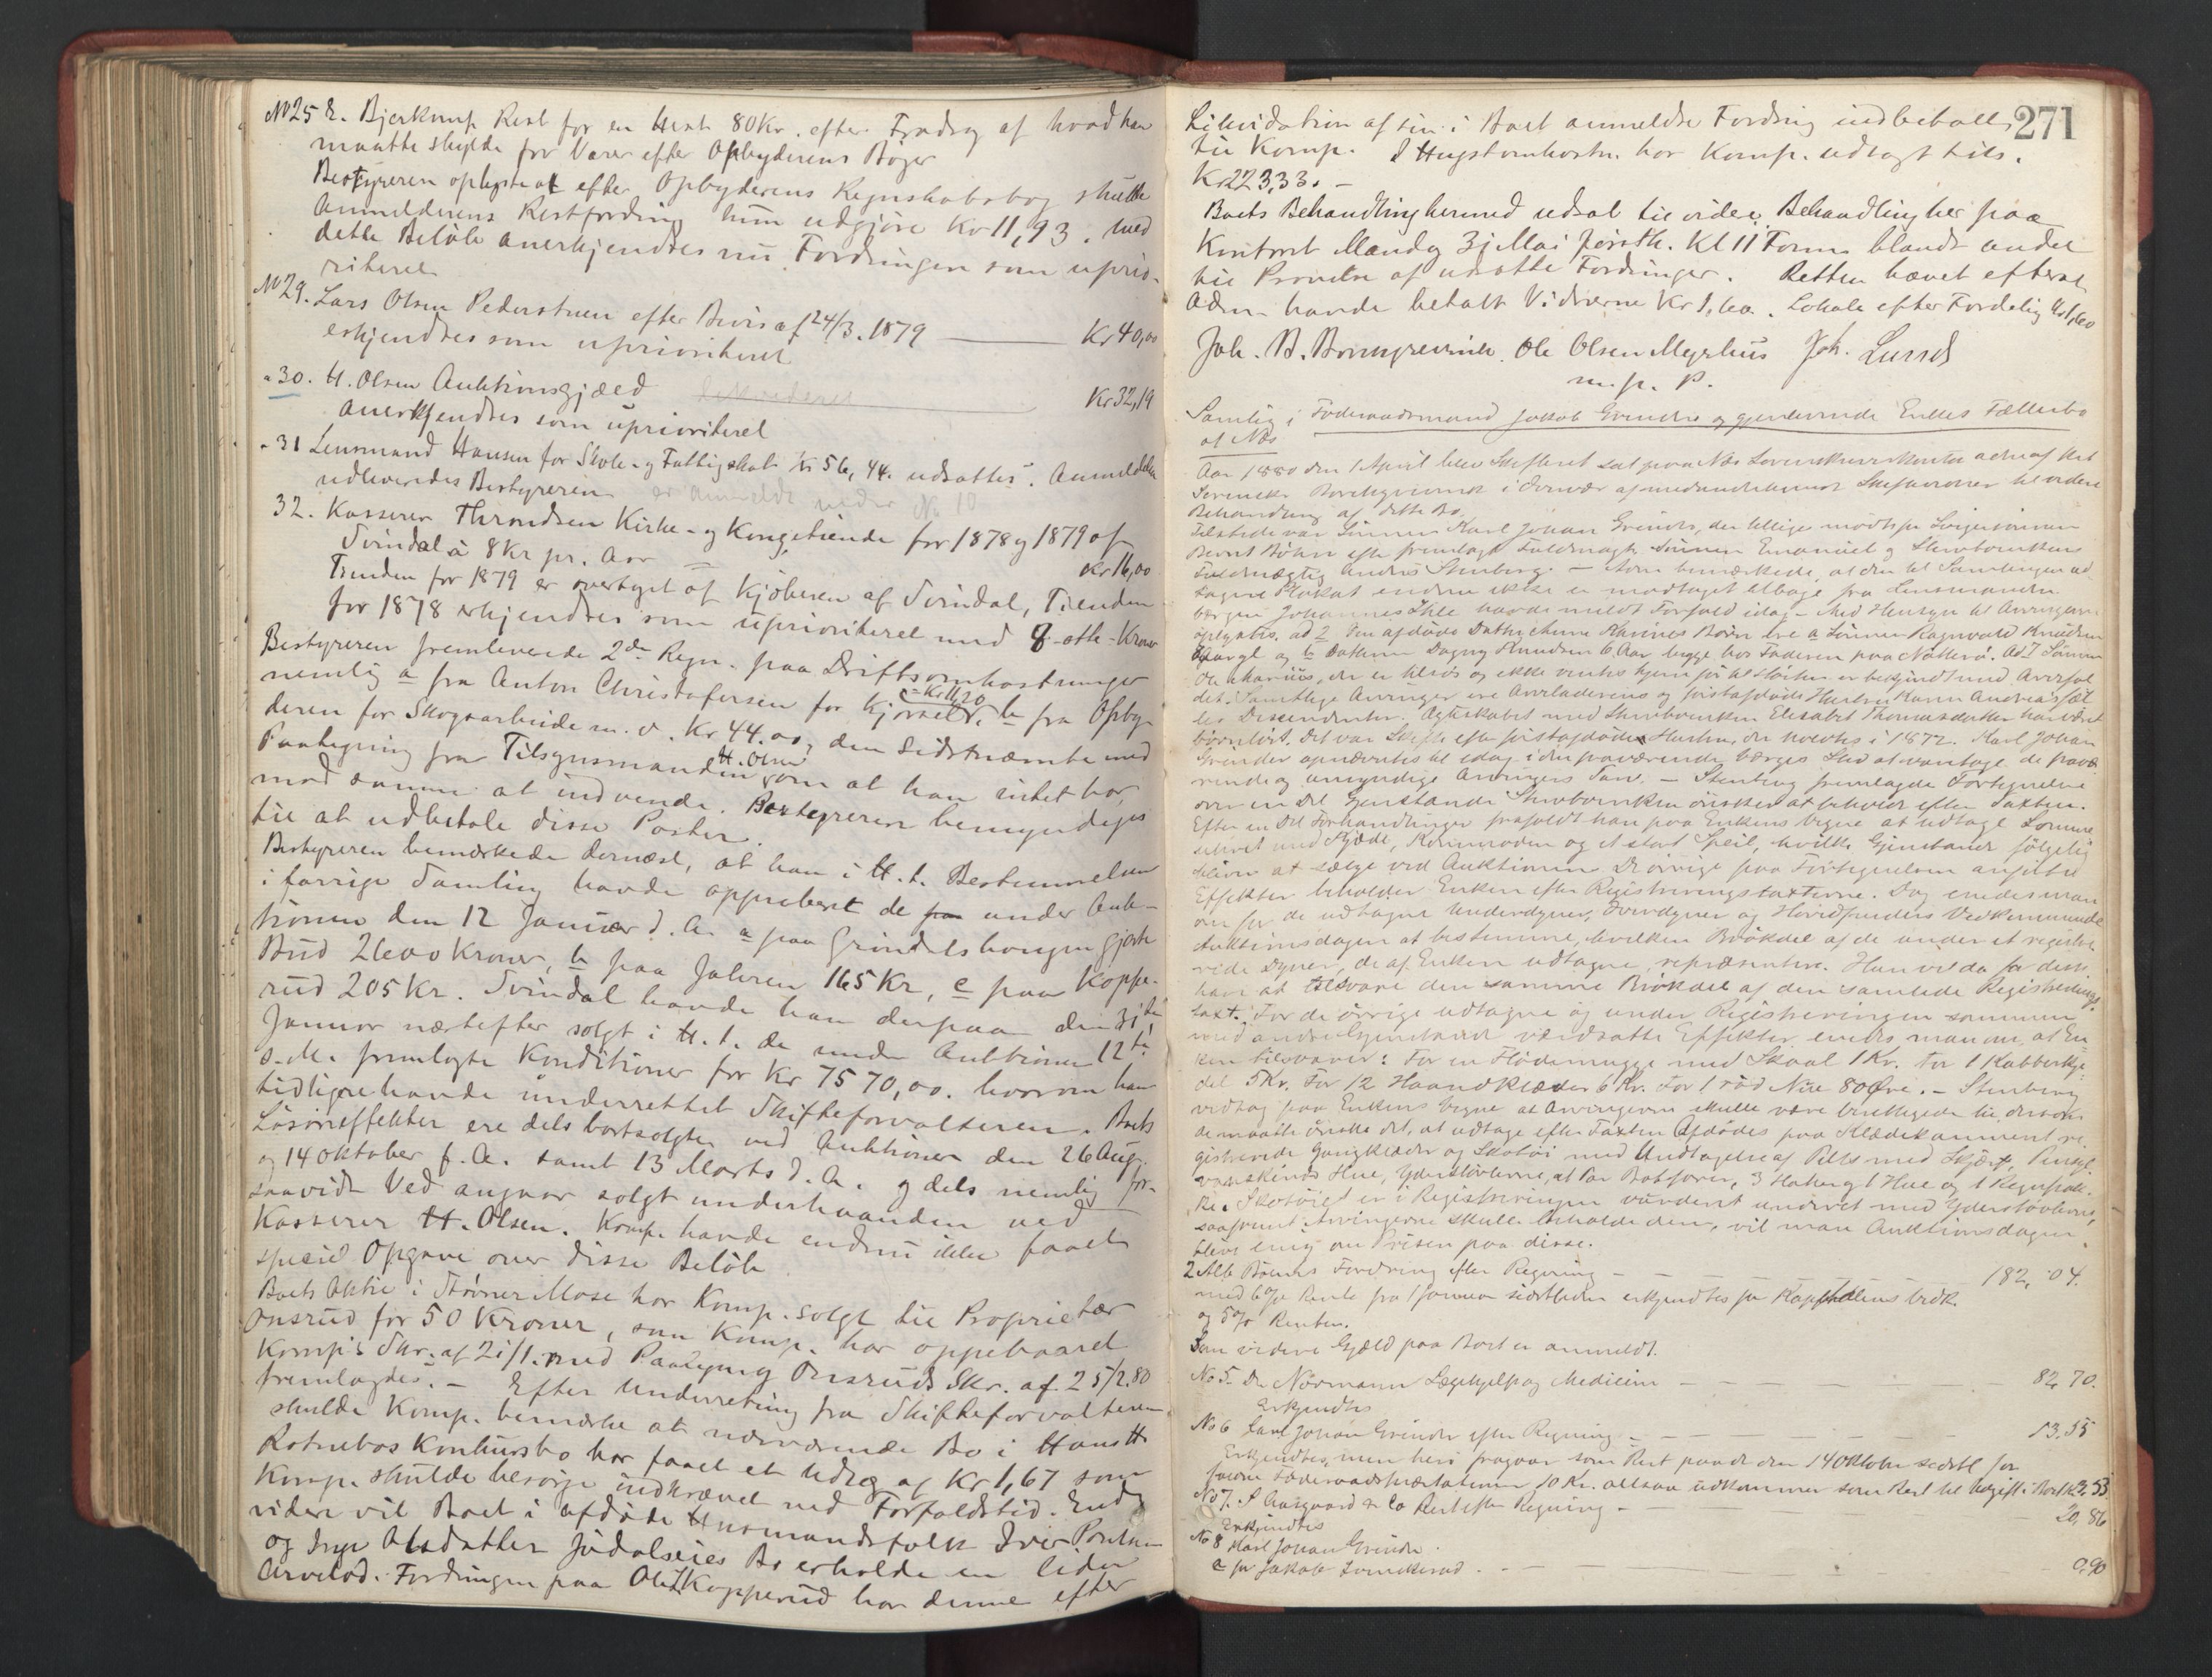 No 25 E. Bjerknes Rest for en Hest 80 Kr. efter Fradrag af hvad han
maatte skylde for Varer efter Opbyderens Bøger
Bestyreren oplyste at efter Opbyderens Regnskabsbog skulde
Anmelderens Restfordring kun udgjøre Kr 11,93. Med
dette Beløb anerkjendtes nu Fordringen som uprio-
riteret
No 29. Lars Olsen Pederstuen efter Bevis af 24/3. 1879 Kr 40,00
erkjendtes som uprioriteret
" 30. H. Olsen Auktionsgjæld Kr 32,19
anerkjendtes som uprioriteret
" 31 Lensmand Hansen for Skole- og Fattigskat Kr 56,44. udsattes. Anmeldelsen
udleveredes Bestyreren er anmeldt under No 10
32. Kasserer Throndsen Kirke- og Kongetiende for 1878 og 1879 af
Svindal à 8 Kr pr. Aar Kr 16,00
Tienden for 1879 er overtaget af Kjøberen af Svindal, Tienden
for 1878 erkjendtes som uprioriteret med 8 - otte - Kroner
Bestyreren fremleverede 2de Regn. paa Driftsomkostninger
nemlig a fra Anton Christofersen for Kjørsel - Kr 11,20, b fra Opby-
deren for Skogsarbeide m. v. Kr 44.00, den sidstnæmte med
Paategning fra Tilsynsmanden H. Olsen om at han intet har
mod samme at indvende. Bestyreren bemyndiges
til at udbetale disse Poster.
Bestyreren bemærkede dernæst, at han i H. t. Bestemmelsen
i forrige Samling havde approberet de under Auk-
tionen den 12 Januar d. A. a paa Grindelshougen gjorte
Bud 2600 Kroner, b paa Jahren 165 Kr, c paa Koppe-
rud 205 Kr. Svindal havde han derpaa den 31te
Januar næstefter solgt i H. t. de under Auktionen 12te
s. M. fremlagte Konditioner for Kr 7570,00. hvorom han
tidligere havde underrettet Skifteforvalteren. Boets
Løsøreffekter ere dels bortsolgte ved Auktioner den 26 Aug.
og 14 Oktober f. A. samt 13 Marts d. A. og dels nemlig for-
saavidt Ved angaar solgt underhaanden ved
Kasserer H. Olsen. Komp. havde endnu ikke faaet
speciel Opgave over disse Beløb
Boets Aktie i Størner Mose har Komp. solgt til Proprietær
Onsrud for 50 Kroner, som Komp. har oppebaaret
Komp's Skr. af 21/1. med Paategning Onsruds Skr. af 25/2.80
fremlagdes. - Efter Underretning fra Skifteforvalteren
skulde Komp. bemærke at nærværende Bo i Hans H.
Rotnebos Konkursbo har faaet et Udlæg af Kr 1,67 som
Komp. skulde besørge indkrævet ved Forfaldstid. End-
videre vil Boet i afdøde Husmandsfolk Iver Poulsen
og Inger Olsdatter Judalseies Bo erholde en liden
Arvelod. Fordringen paa Ole Kopperud har denne efter
271
Likvidation af sin i Boet anmeldte Fordring indbetalt
til Komp. I Hugstomkostn. har Komp. udlagt tils.
Kr 223,33. -
Boets Behandling hermed udsat til videre Behandling her paa
Kontoret Mandag 31 Mai førsth. Kl 11 Form. blandt andet
til Prøvelse af udsatte Fordringer. Retten hævet efterat
Adm. havde betalt Vidnerne Kr 1,60. Lokale efter Fordeling Kr 1,60
Ole Olsen Myrhus Joh. Lund
m. p. P.
Samling i Føderaadsmand Jakob Grinders og gjenlevende Enkes Fællesbo
af Næs
Aar 1880 den 1 April blev Skifteret sat paa Næs Sorenskriverkontor adm af det
Sorenskr. i Overvær af medundertegnede Skifte til videre
Behandling af dette Bo.
Tilstede var Sønnen Karl Johan Grinder, der tillige mødte for Svigersønnen
Bernt Bøhn efter fremlagt Fuldmagt. Sønnen Emanuel og Skru Enkens
Fuldmægtig Anders Stenberg. - Adm bemærkede, at den til Samlingen ud-
tagne Plakat endnu ikke er modtaget tilbage fra Lensmanden
Johannes havde meldt Forfald idag. - Med Hensyn til Arvingerne
oplystes. ad 2 den afdøde Datter Karines Børn ere a Sønnen Ragnvald Knudsen
og b Datteren Dagny Knudsen 6 Aar begge hos Faderen paa Nøtterø. Ad 7 Sønnen
Ole er tilsjøs og ikke ventes hjem før til Høsten er bekjendt med Arvefal-
det. Samtlige Arvinger ere Arveladerens og førstafdøde Hustru Karen Andreasd. fæl-
les Descendenter. Ægteskabet med Enken Elisabet Thomasdatter har været
børnløst. Det var Skifte efter førstafdøde Hustru, der holdtes i 1872. Karl Johan
Grinder opnævntes til idag i den fraværende Værges Sted at varetage de fravæ-
rende og umyndige Arvingers Tarv. - Stenberg fremlagde Fortegnelse
over en Del Gjenstande Enken ønsker at beholde efter Taxten.
Efter en Del Forhandlinger frafaldt han paa Enkens Vegne at udtage Lomme-
uhret med Kjæde, Kommoden og et stort Speil, hvilke Gjenstande følgelig
bliver at sælge ved Auktionen De øvrige paa Fortegnelsen anførte
Effekter beholder Enken efter Registreringstaxterne. Dog enedes man
om for de udtagne Underdyner, Overdyner og Hovedpuders Vedkommende
Auktionsdagen at bestemme, hvilken Brøkdel af de under et registre-
rede Dyner, de af Enken udtagne, repræsentere. Hun vil da for disse
have at tilsvare den samme Brøkdel af den samlede Registrerings-
taxt. For de øvrige udtagne og under Registreringen sammen
med andre Gjenstande værdsatte Effekter enedes man om, at En-
ken tilsvarer: For en Flødemugge med Skaal 1 Kr. For 1 Kobberkje-
del 5 Kr. For 12 Haandklæder 6 Kr. For 1 rød 80 Øre. - Stenberg
vedtog paa Enkens Vegne at Arvingerne skulle være berettigede til dersom
de maatte ønske det, at udtage efter Taxten Afdødes paa Klædekammeret re-
gistrerede Gangklæder og Skotøi med Undtagelse af Pels med Skjært,
Hue, Yderstøvlerne, et Par Botforer, 3 og 1 Hue og 1 Regnfrak-
ke. Skotøiet er i Registreringen vurderet underet med Yderstøvlerne,
saafremt Arvingerne skulle beholde dem, vil man Auktionsdagen
blive enig om Prisen paa disse.
2 Børnes Fordring efter Regning 182,04.
med 6 % Rente fra 1 Januar sidstleden erkjendtes for Kapitalens Vedk.
og 5% Renten.
Som videre Gjæld paa Boet er anmeldt.
No 5 Dr Normann Lægehjelp og Medicin 82,70.
Erkjendtes
No 6 Carl Johan Grinder efter Regning 13.55
Erkjendtes, men heri fragaar som Rest paa de den 14 Oktober sidstl for-
faldne Føderaadspræstationer 10 Kr. altsaa udkommer som Rest til Udgift i Boet Kr 3.55
No 7. P Aasgaard & Co Rest efter Regning 20,86
Erkjendtes
No 8 Karl Johan Grinder.
a for Jakob 0,90